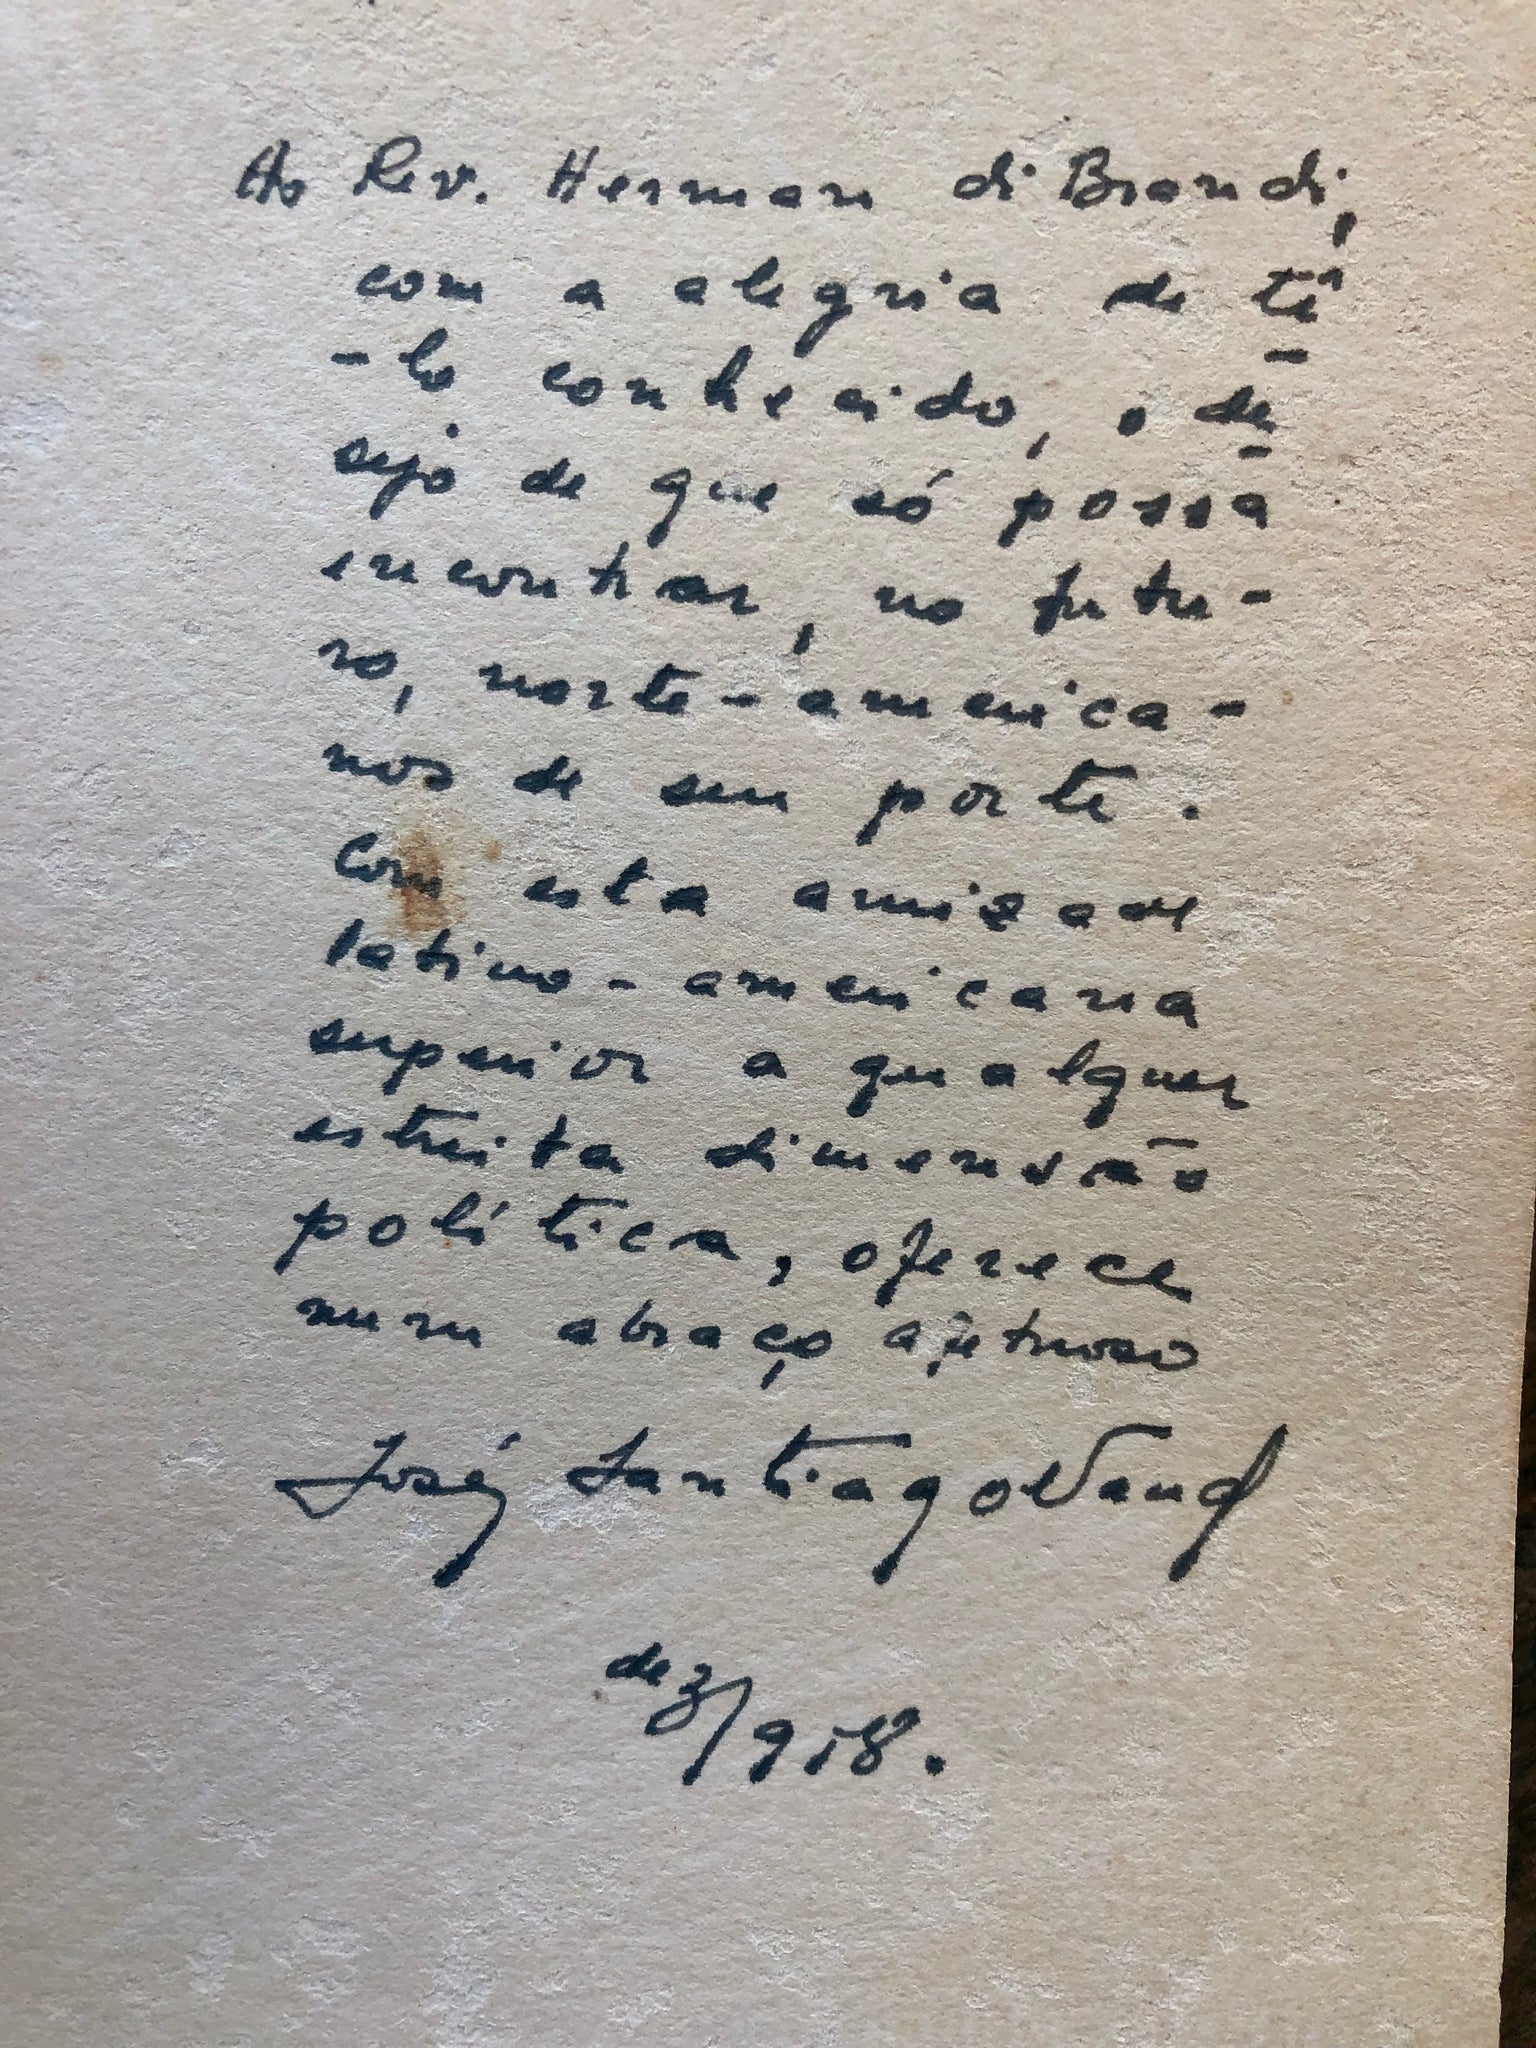 Ao Rev. Herman di Brandi,
com a alegria de tê
-lo conhecido, o de
sejo de que só possa
encontrar, no futu-
ro, norte-america-
nos de seu porte.
Com esta amizade
latino-americana
superior a qualquer
estreita dimensão
política, oferece
num abraço afetuoso
José Santiago Naud
dez/958.